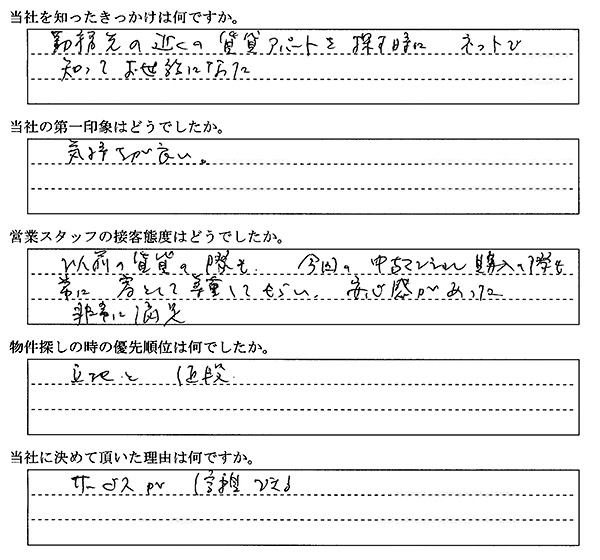 当社を知ったきっかけは何ですか。
勤務先の近くの賃貸アパートを探す時に ネットで
知ってお世話になった
当社の第一印象はどうでしたか。
気持ちが良い。
営業スタッフの接客態度はどうでしたか。
以前の賃貸の際も、今回の中古マンション購入の際も
常に客として尊重してもらい、安心感があった
非常に満足
物件探しの時の優先順位は何でしたか。
立地と 値段
当社に決めて頂いた理由は何ですか。
サービスが 信頼できる